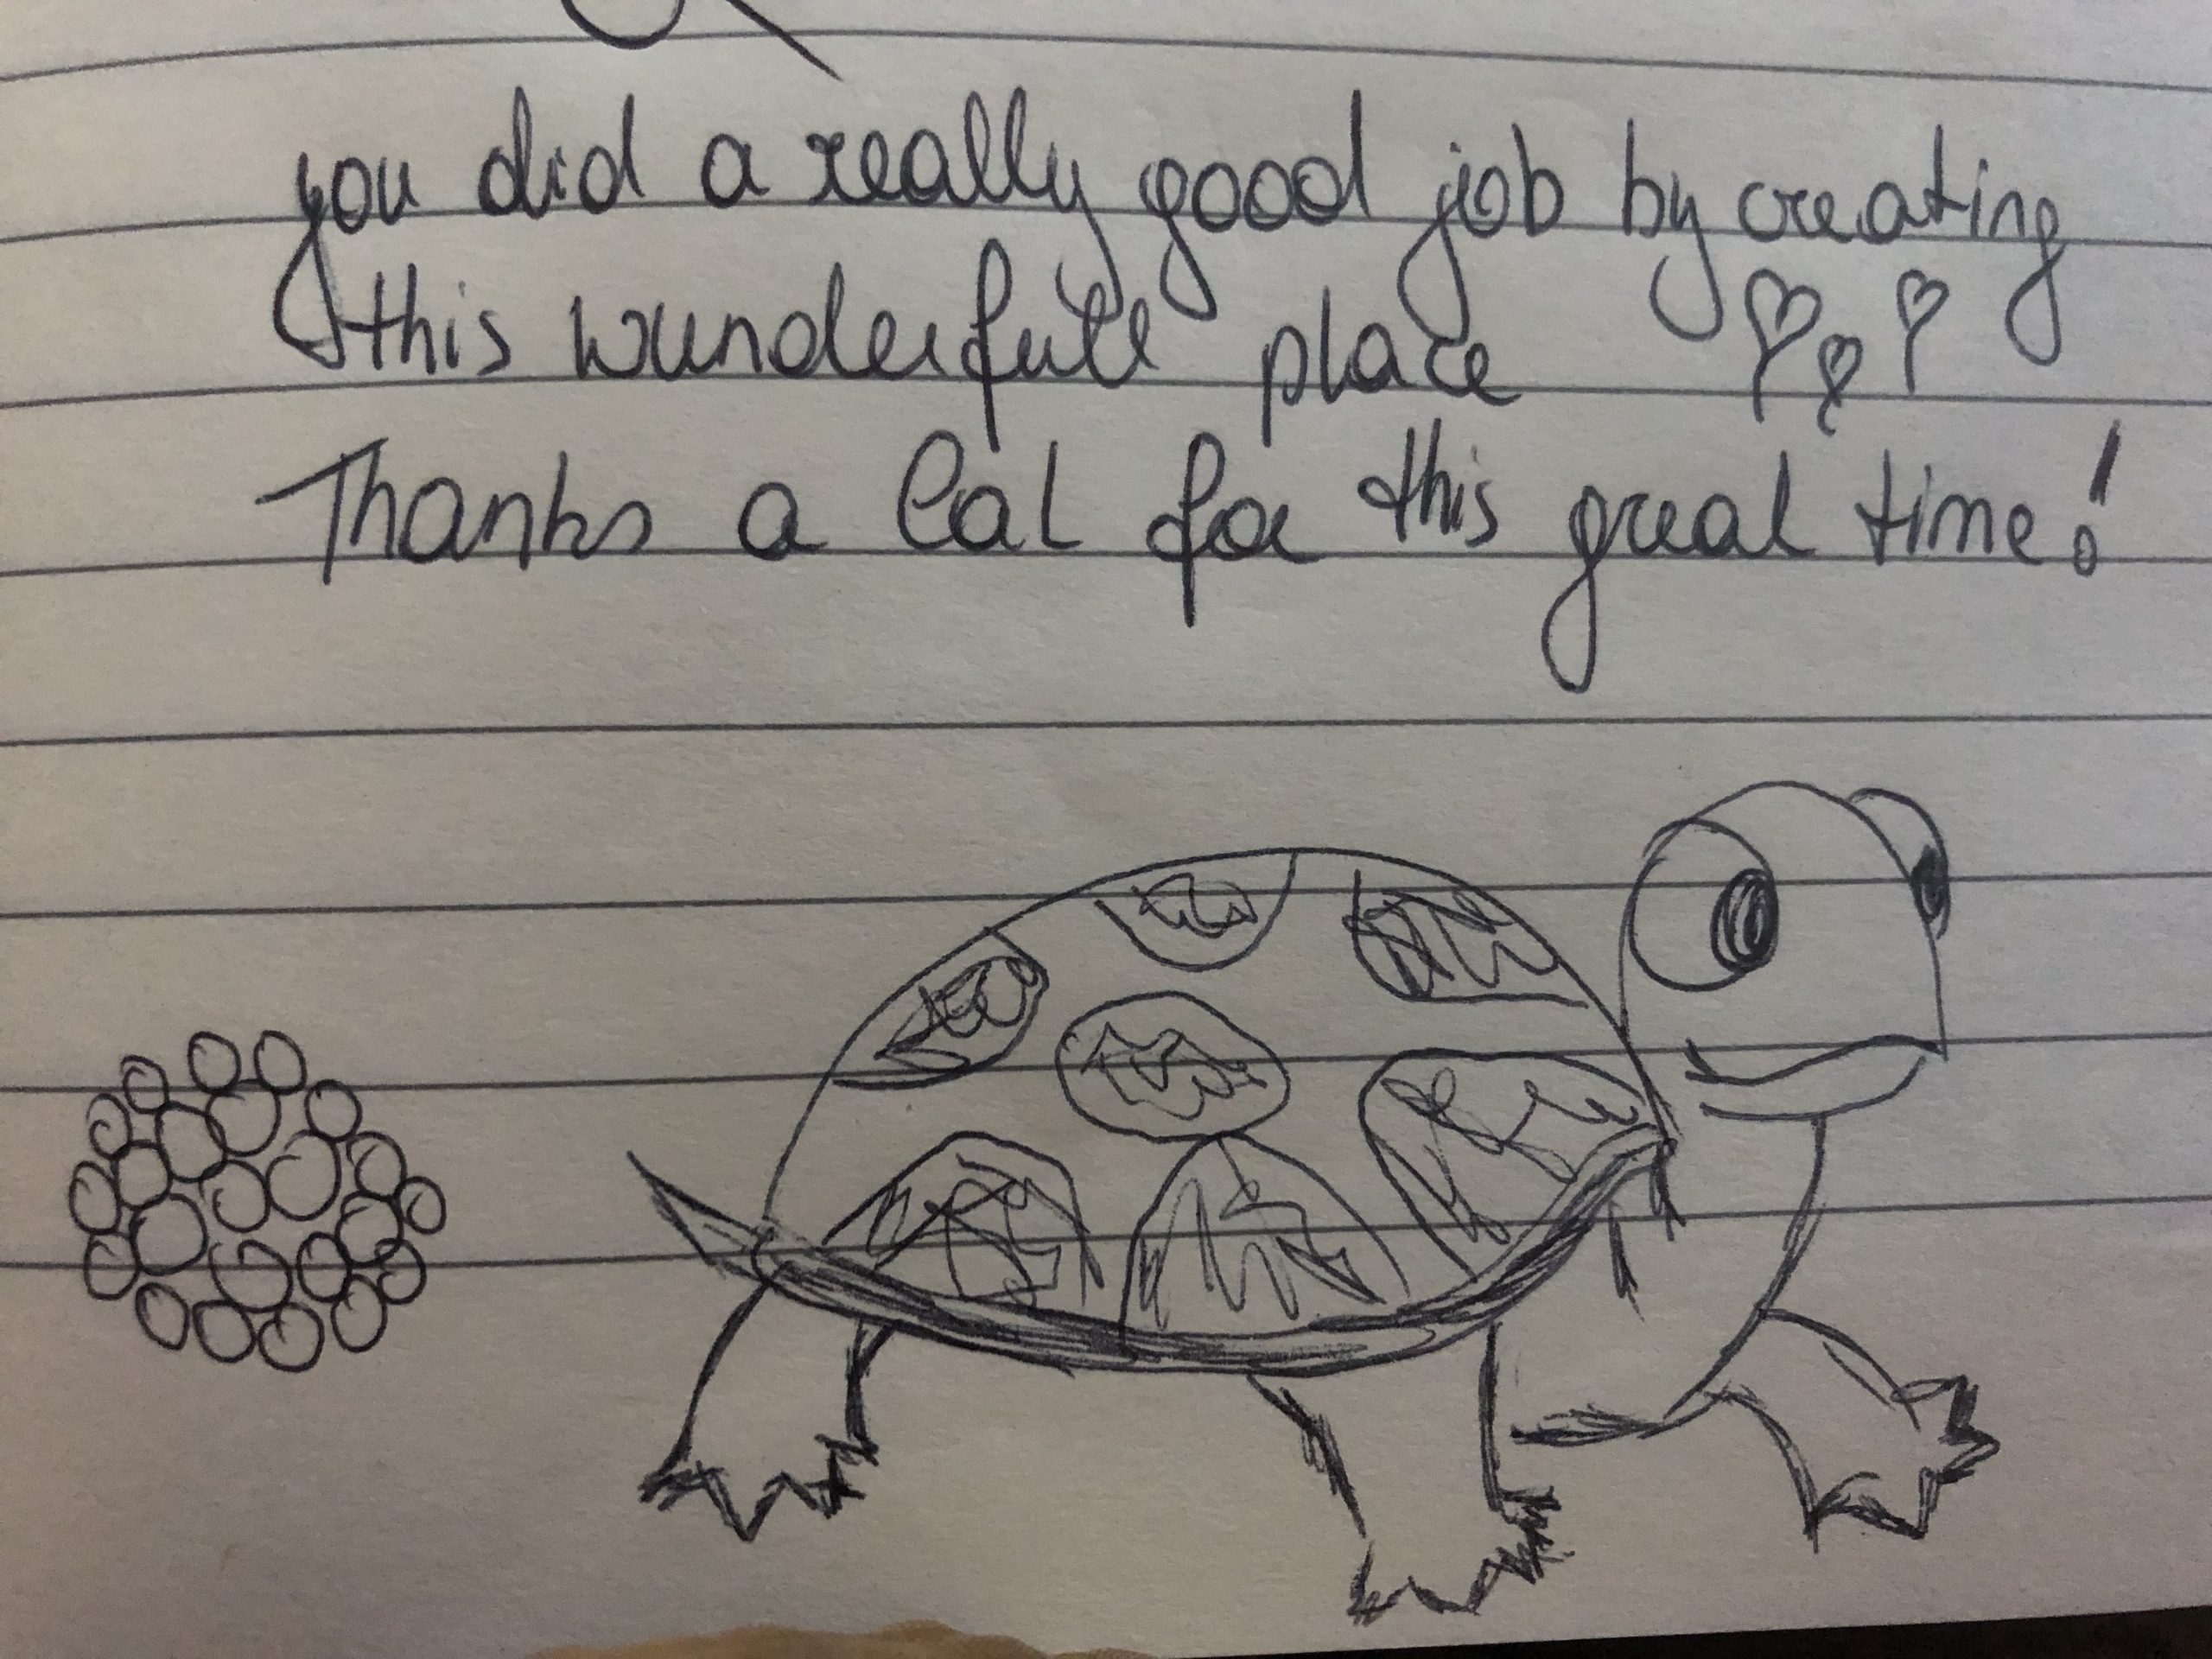 you did a really good job by creating
this wunderfull place
Thanks a lot for this great time!